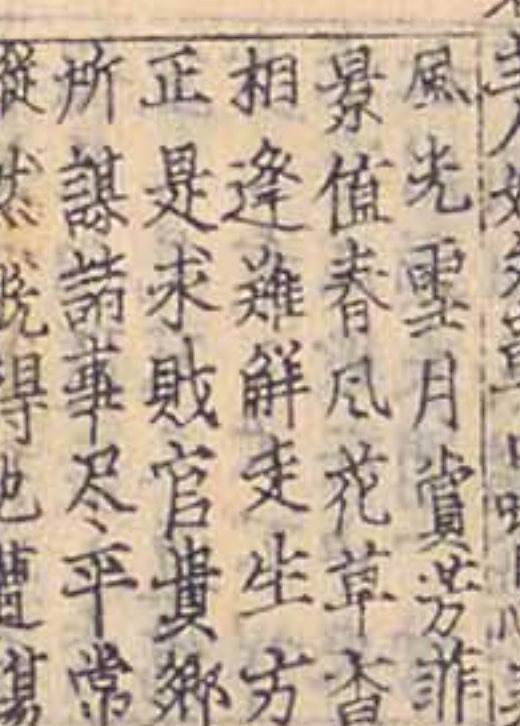 風光雪月賞芳菲
景值春风花草香
相逢難觧走生方
正是求財官貴鄉
所謀諸事尽平常
縱然説得也遭